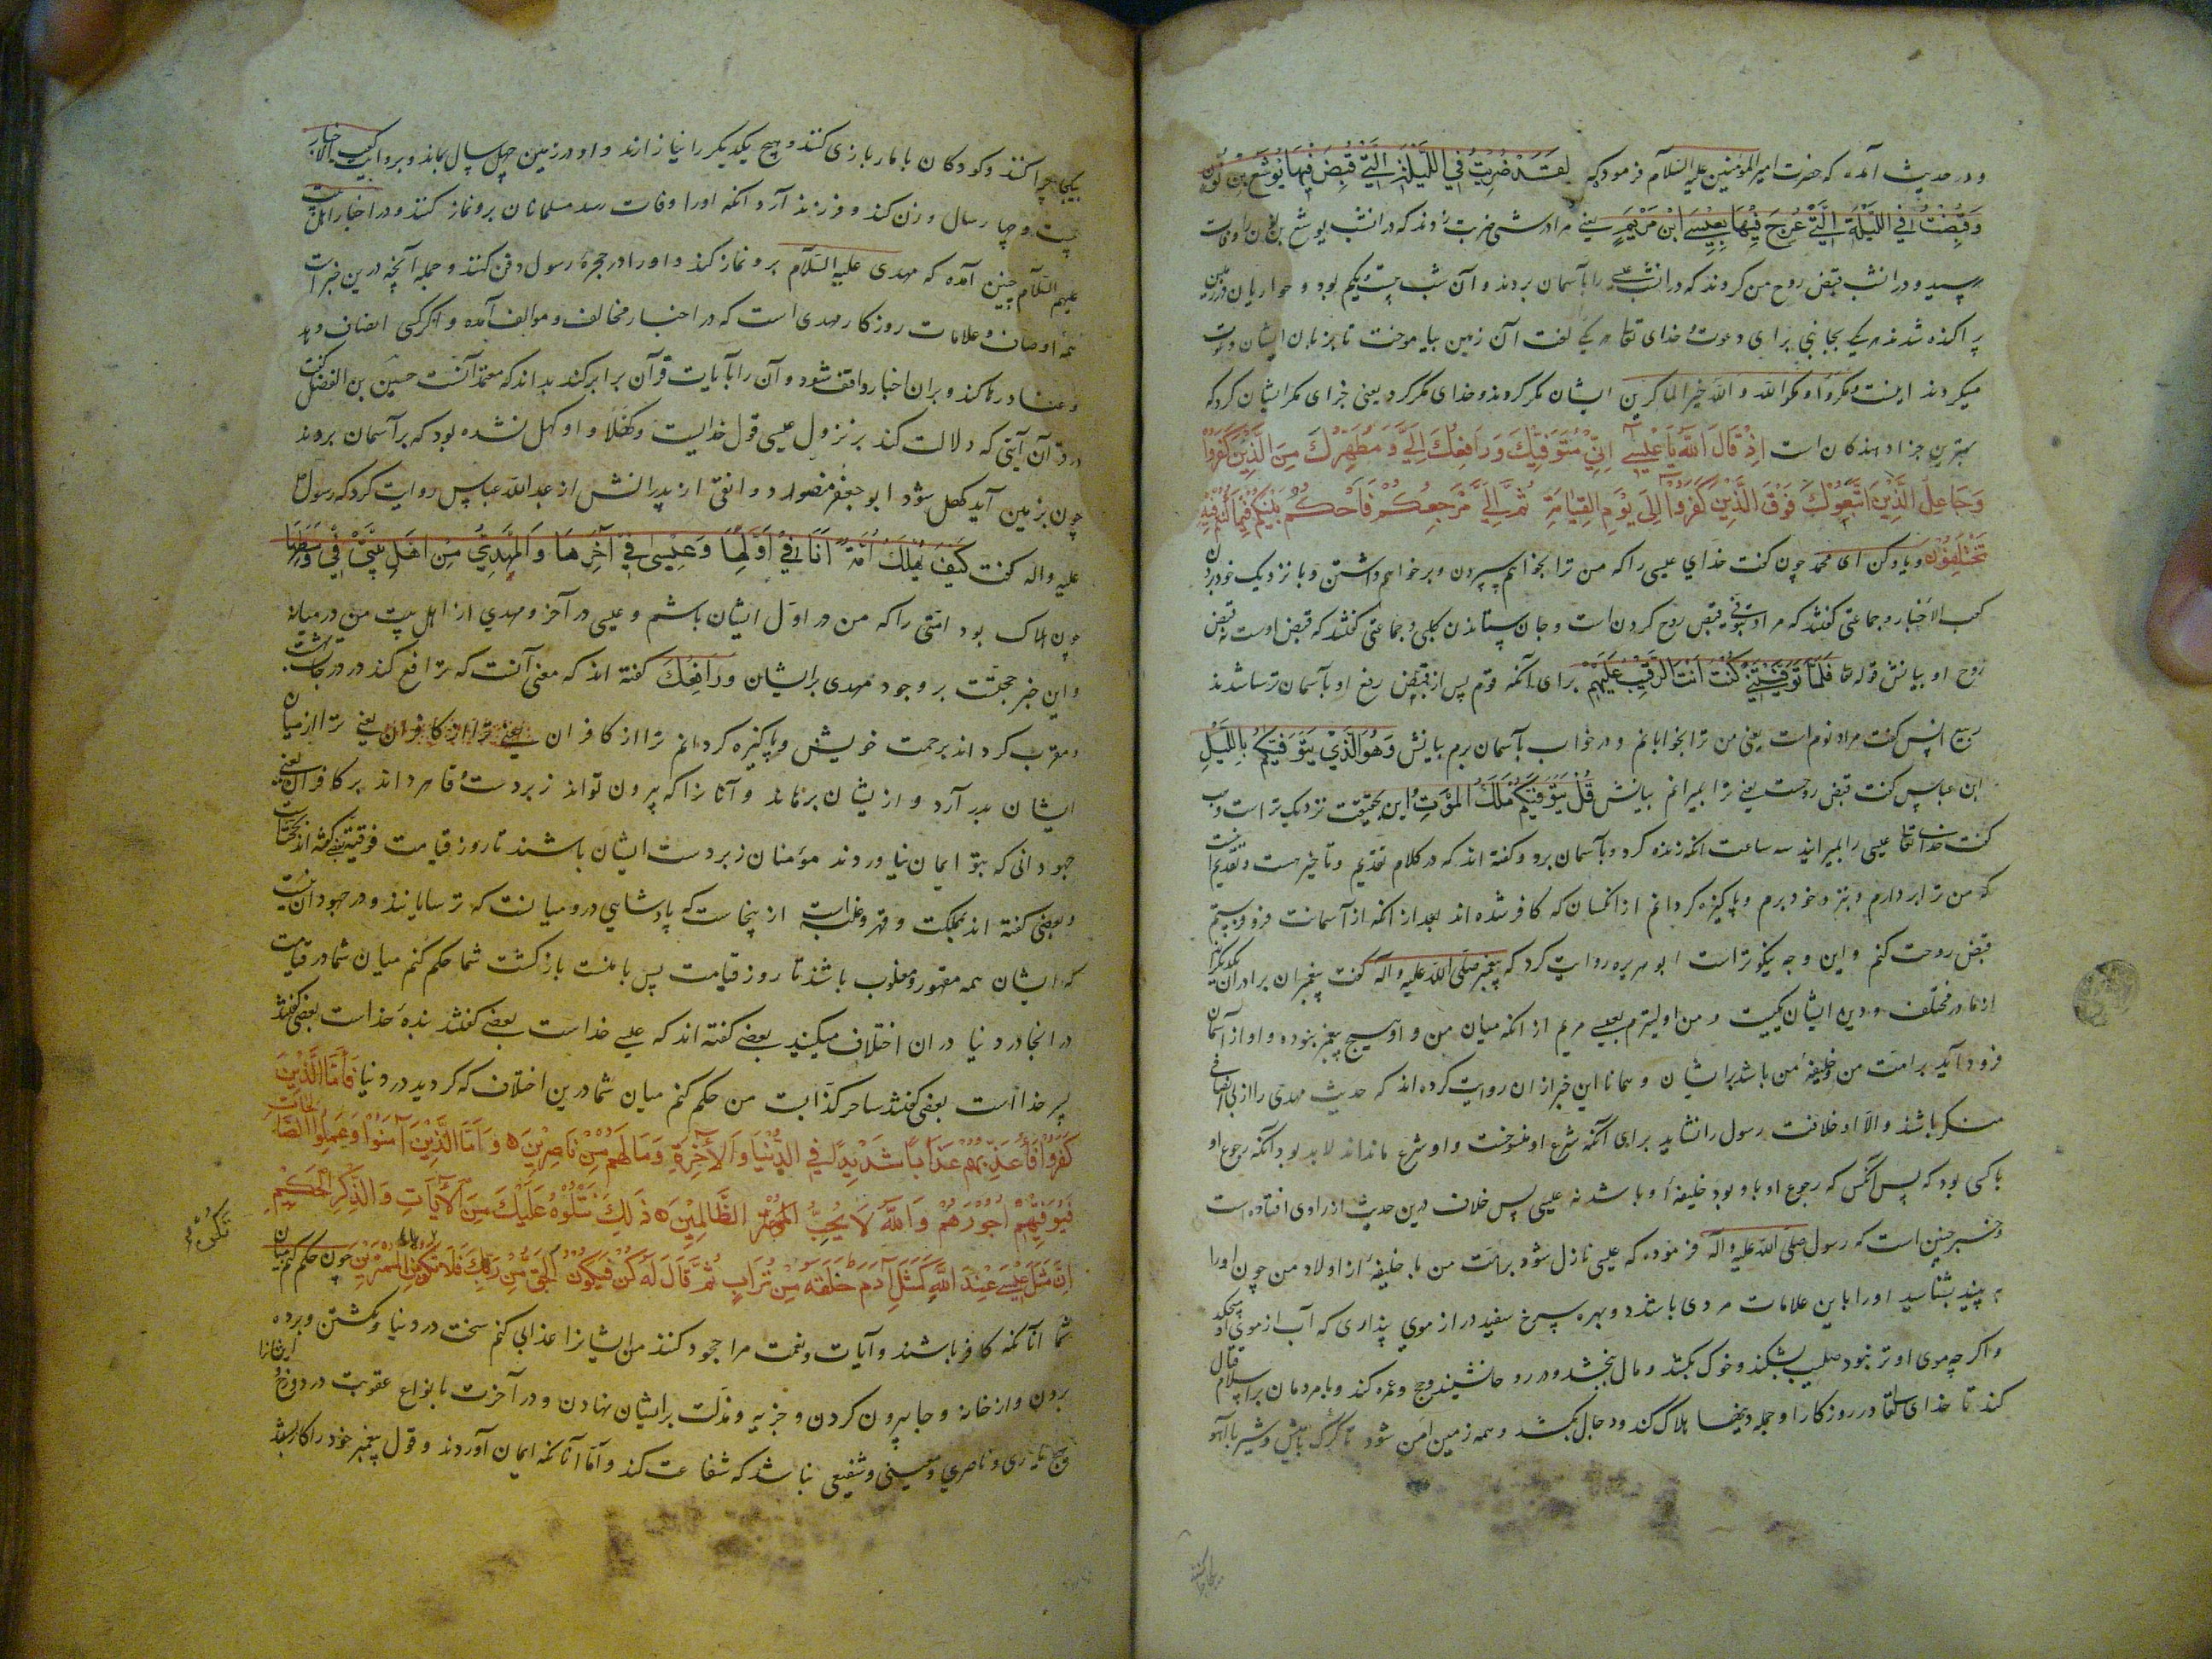 و در حدیث آمده که حضرت امیر المؤمنین علیه السّلام فرمود که لقد ضُرِبتُ فی اللَّیلَةِ الَّتی قُبِضَ فیها یُوشَعُ بنُ نُون
وَقُبِضتُ فِی اللَّیلَةِ الَّتی عُرِجَ فیها بِعیسَی ابنِ مَریَم یعنی مرا در شبی ضربت زدند که در انشب یوشع بن نون را وفات
رسید و در انشب قبض روح من کردند که در انشب عیسی را بآسمان بردند و آن شب بیست ویکم بود و حواریان در زمین
پراکنده شدند هر یکی بجانبی برای دعوت خدای تعالی هر یکی لغت آن زمین بیاموخت تا بزبان ایشان دعوت
میکردند اینست ومکروا ومکر الله والله خیر الماکرین ایشان مکر کردند و خدای مکر کرد یعنی جزای مکر ایشان کرد که
بهترین جزا دهندکان است اِذْ قَالَ اللّهُ یَا عِیْسٰی اِنِّیْ مُتَوَفِّیْكَ وَرَافِعُكَ اِلَیَّ وَمُطَهِّرُكَ مِنَ الَّذِیْنَ كَفَرُوْا
وَجَاعِلُ الَّذِیْنَ اتَّبَعُوْكَ فَوْقَ الَّذِیْنَ كَفَرُوْا اِلَی یَوْمِ الْقِیَامَةِ ثُمَّ اِلَیَّ مَرْجِعُكُمْ فَاَحْكُمُ بَیْنَكُمْ فِیْمَا كُنْتُمْ فِیْهِ
تَخْتَلِفُوْنَ و یاد کن ای محمد چون کفت خدای عیسی را که من ترا بخواهم سپردن و بر خواهم داشتن و با نزدیک خود بردن
کعب الاخبار و جماعتی کفتند که مراد بتوفی قبض روح کردن است و جان ستاندن کلبی و جماعتی کفتند که قبض اوست نه قبض
روح او بیانش قوله تعا فَلَمّا تَوَفَّیتَنی کُنتَ اَنتَ الرَّقیبَ عَلَیهِم برای آنکه قوم پس از قبض رفع او بآسمان ترسا شدند
ربیع انس کفت مراد نوم است یعنی من ترا بخوابانم و در خواب بآسمان برم بیانش وَهُوَ الَّذی یَتَوَفّیکُم بِاللَّیلِ
ابن عباس کفت قبض روحست یعنی ترا بمیرانم بیانش قُل یَتَوَفّیکُم مَلَكُ المَوتِ این بحقیقت نزدیک تر است وهب
کفت خدای تعا عیسی را بمیرانید سه ساعت انکه زنده کرد و بآسمان برد و کفته اند که در کلام تقدیم و تاخیر هست و تقدیم اینست
که من ترا بردارم و بنزد خود برم و پاکیزه کردانم از انکسان که کافر شده اند بعد از انکه از آسمانت فرو فرستم
قبض روحت کنم و این وجه نیکوتر است ابو هریره روایت کرد که پیغمبر صلی الله علیه واله کفت پیغمبران برادران یکدیکرند
از مادر مختلف و دین ایشان یکیست و من اولیترم بعیسی مریم از انکه میان من و او هیچ پیغمبر نبوده و او از آسمان
فرود آید بر امت من و خلیفه من باشد بر ایشان و همانا این خبر از ان روایت کرده اند که حدیث مهدی را از بی انصافی
منکر باشند والا او خلافت رسول را نشاید برای آنکه شرع او منسوخست و او شرع ما نداند لا بد بود آنکه رجوع او
با کسی بود که پس آنکس که رجوع او با او بود خلیفه او باشد نه عیسی پس خلاف درین حدیث از راوی افتاده است
و خبر چنین است که رسول صلی الله علیه واله فرموده که عیسی نازل شود بر امت من با خلیفه از اولاد من چون اورا
به بینید بشناسید اورا باین علامات مردی باشد دو بهره سرخ سفید دراز موی پنداری که آب از موی او میچکد
و اکرچه موی او تر نبود صلیب بشکند و خوک بکشد و مال ببخشد و در روحا نشیند و حج و عمره کند و با مردمان بر اسلام قتال
کند تا خدای تعا در روزکار او جمله دینها هلاک کند و دجال بکشد و همه زمین امن شود تا کرک با میش و شیر با آهو
یکجا چرا کنند و کودکان با مار بازی کنند و هیچ یکدیکر را نیازارند و او در زمین چهل سال بماند و بروایت کعب الاخبار
بیست و چهار سال و زن کند و فرزند آرد آنکه اورا وفات رسد مسلمانان برو نماز کنند و در اخبار اهل بیت
علیهم السّلام چنین آمده که مهدی علیه السّلام برو نماز کند و اورا در حجره رسول دفن کنند و جمله آنچه درین خبر است
همه اوصاف و علامات روزکار مهدی است که در اخبار مخالف و موالف آمده و اکر کسی انصاف دهد
و عناد رها کند و بران اخبار واقف شود و آن را با آیات قرآن برابر کند بداند که معتمد آنست حسین بن الفضل کفت
در قرآن آیتی که دلالت کند بر نزول عیسی قول خدایست وکهلا و او کهل نشده بود که بر آسمان بردند
چون بزمین آید کهل شود ابو جعفر منصور دوانقی از پدرانش از عبد الله عباس روایت کرد که رسول
علیه واله کفت کَیفَ یَهلِكُ اُمَّةٌ اَنَا فی اَوَّلِها وَعیسی فی آخِرِها وَالمَهدِیُّ مِن اَهلِ بَیتی فی وَسَطِها
چون هلاک بود امتی را که من در اول ایشان باشم و عیسی در آخر و مهدی از اهل بیت من در میانه
و این خبر حجتست بر وجود مهدی بر ایشان ورافعك کفته اند که معنی آنست که ترا رفع کند در درجات بهشت
و مقرب کرداند برحمت خویش و پاکیزه کردانم ترا از کافران یعنی ترا از کافران یعنی ترا از میان
ایشان بدر آرد و از یشان برهاند و آنانرا که پیرون تواند زبردست و قاهر داند بر کافران یعنی
جهودانی که بتو ایمان نیاوردند مؤمنان زبردست ایشان باشند تا روز قیامت
و بعضی کفته اند بمملکت و قهر و غلبه است از ینجاست که پادشاهی در و میانست که ترسایانند و در جهودان نیست
که ایشان همه مقهور و مغلوب باشند تا روز قیامت پس با منست بازکشت شما حکم کنم میان شما در قیامت
در انجا در دنیا دران اختلاف میکنید بعضی کفته اند که عیسی خداست بعضی کفتند بنده خداست بعضی کفتند
پسر خدا است بعضی کفتند ساحر کذابست من حکم کنم میان شما درین اختلاف که کردید در دنیا فَاَمَّا الَّذِیْنَ
كَفَرُوْا فَاُعَذِّبُهُمْ عَذَابًا شَدِیْدًا فِی الدُّنْیَا وَالْاٰخِرَةِ وَمَا لَهُمْ مِنْ نَاصِرِیْنَ وَاَمَّا الَّذِیْنَ آمَنُوْا وَعَمِلُوا الصَّالِحَاتِ
فَیُوَفِّیْهِمْ اُجُوْرَهُمْ وَاللّهُ لَا یُحِبُّ الظَّالِمِیْنَ ذٰلِكَ نَتْلُوْهُ عَلَیْكَ مِنَ الْاٰیَاتِ وَالذِّكْرِ الْحَكِیْمِ
اِنَّ مَثَلَ عِیْسٰی عِنْدَ اللّهِ كَمَثَلِ آدَمَ خَلَقَهُ مِنْ تُرَابٍ ثُمَّ قَالَ لَهُ كُنْ فَیَكُوْنُ اَلْحَقُّ مِنْ رَبِّكَ فَلَا تَكُنْ مِنَ الْمُمْتَرِیْنَ چون حکم کنم میان
شما آنانکه کافر باشند و آیات و نعمت مرا جحود کنند من ایشانرا عذابی کنم سخت در دنیا و بکشتن و برده
بردن و از خانه و جا بیرون کردن و جزیه و مذلت بر ایشان نهادن و در آخرت بانواع عقوبت در دوزخ و ایشانرا
هیچ یاری و ناصری و معینی و شفیعی نباشد که شفاعت کند و اما آنانکه ایمان آوردند و قول پیغمبر خود را کار بستند